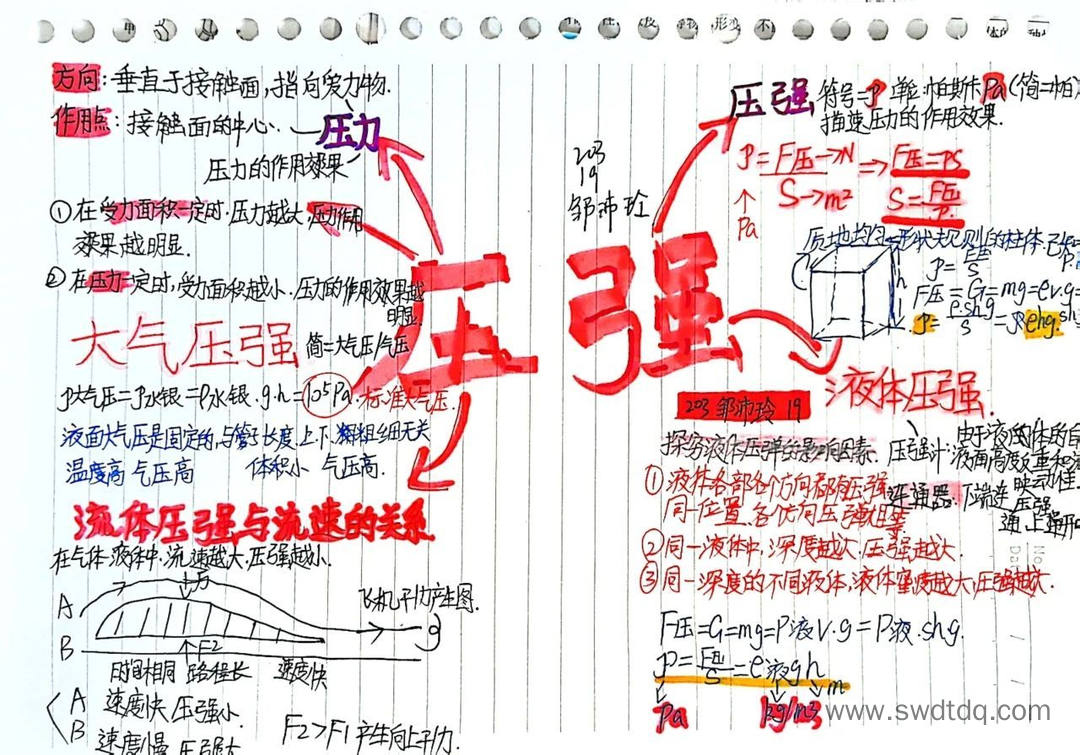 方向:垂直于接触面,指向受力物.
作用点:接触面的中心.
压力
压力的作用效果
①在受力面积一定时.压力越大,压力作用
效果越明显.
②在压力一定时,受力面积越小.压力的作用效果越
明显.
压强
203
19
邹沛玲
压强
符号=P 单位:帕斯卡Pa(简=帕)
描速压力的作用效果.
P=F压→N ⇒ F压=PS
S→m² S=F压/P.
Pa
质地均匀形状规则的柱体
P=F压/S
F压=G=mg=ρv.g=
P=ρ.sh.g/S=ρhg.
大气压强
简=大气压/气压
P大气压=P水银=ρ水银.g.h=10⁵Pa.标准大气压.
液面大气压是固定的,与管子长度.上下.粗细无关
温度高 气压高 体积小 气压高.
流体压强与流速的关系
在气体.液体中,流速越大.压强越小.
F1
A
B
F2
飞机升力产生图.
时间相同 路程长 速度快
A 速度快 压强小.
B 速度慢 压强大
F2>F1产生向上升力.
203 邹沛玲 19
液体压强.
探究液体压强的影响因素.
①液体各部各个方向都有压强
同一位置.各个方向压强相等
②同一液体中,深度越大.压强越大.
③同一深度的不同液体,液体密度越大,压强越大.
压强计:
连通器:下端连
F压=G=mg=ρ液v.g=ρ液.shg.
P=F压/S=ρ液gh
m
Pa
kg/m3
www.swdtdq.com